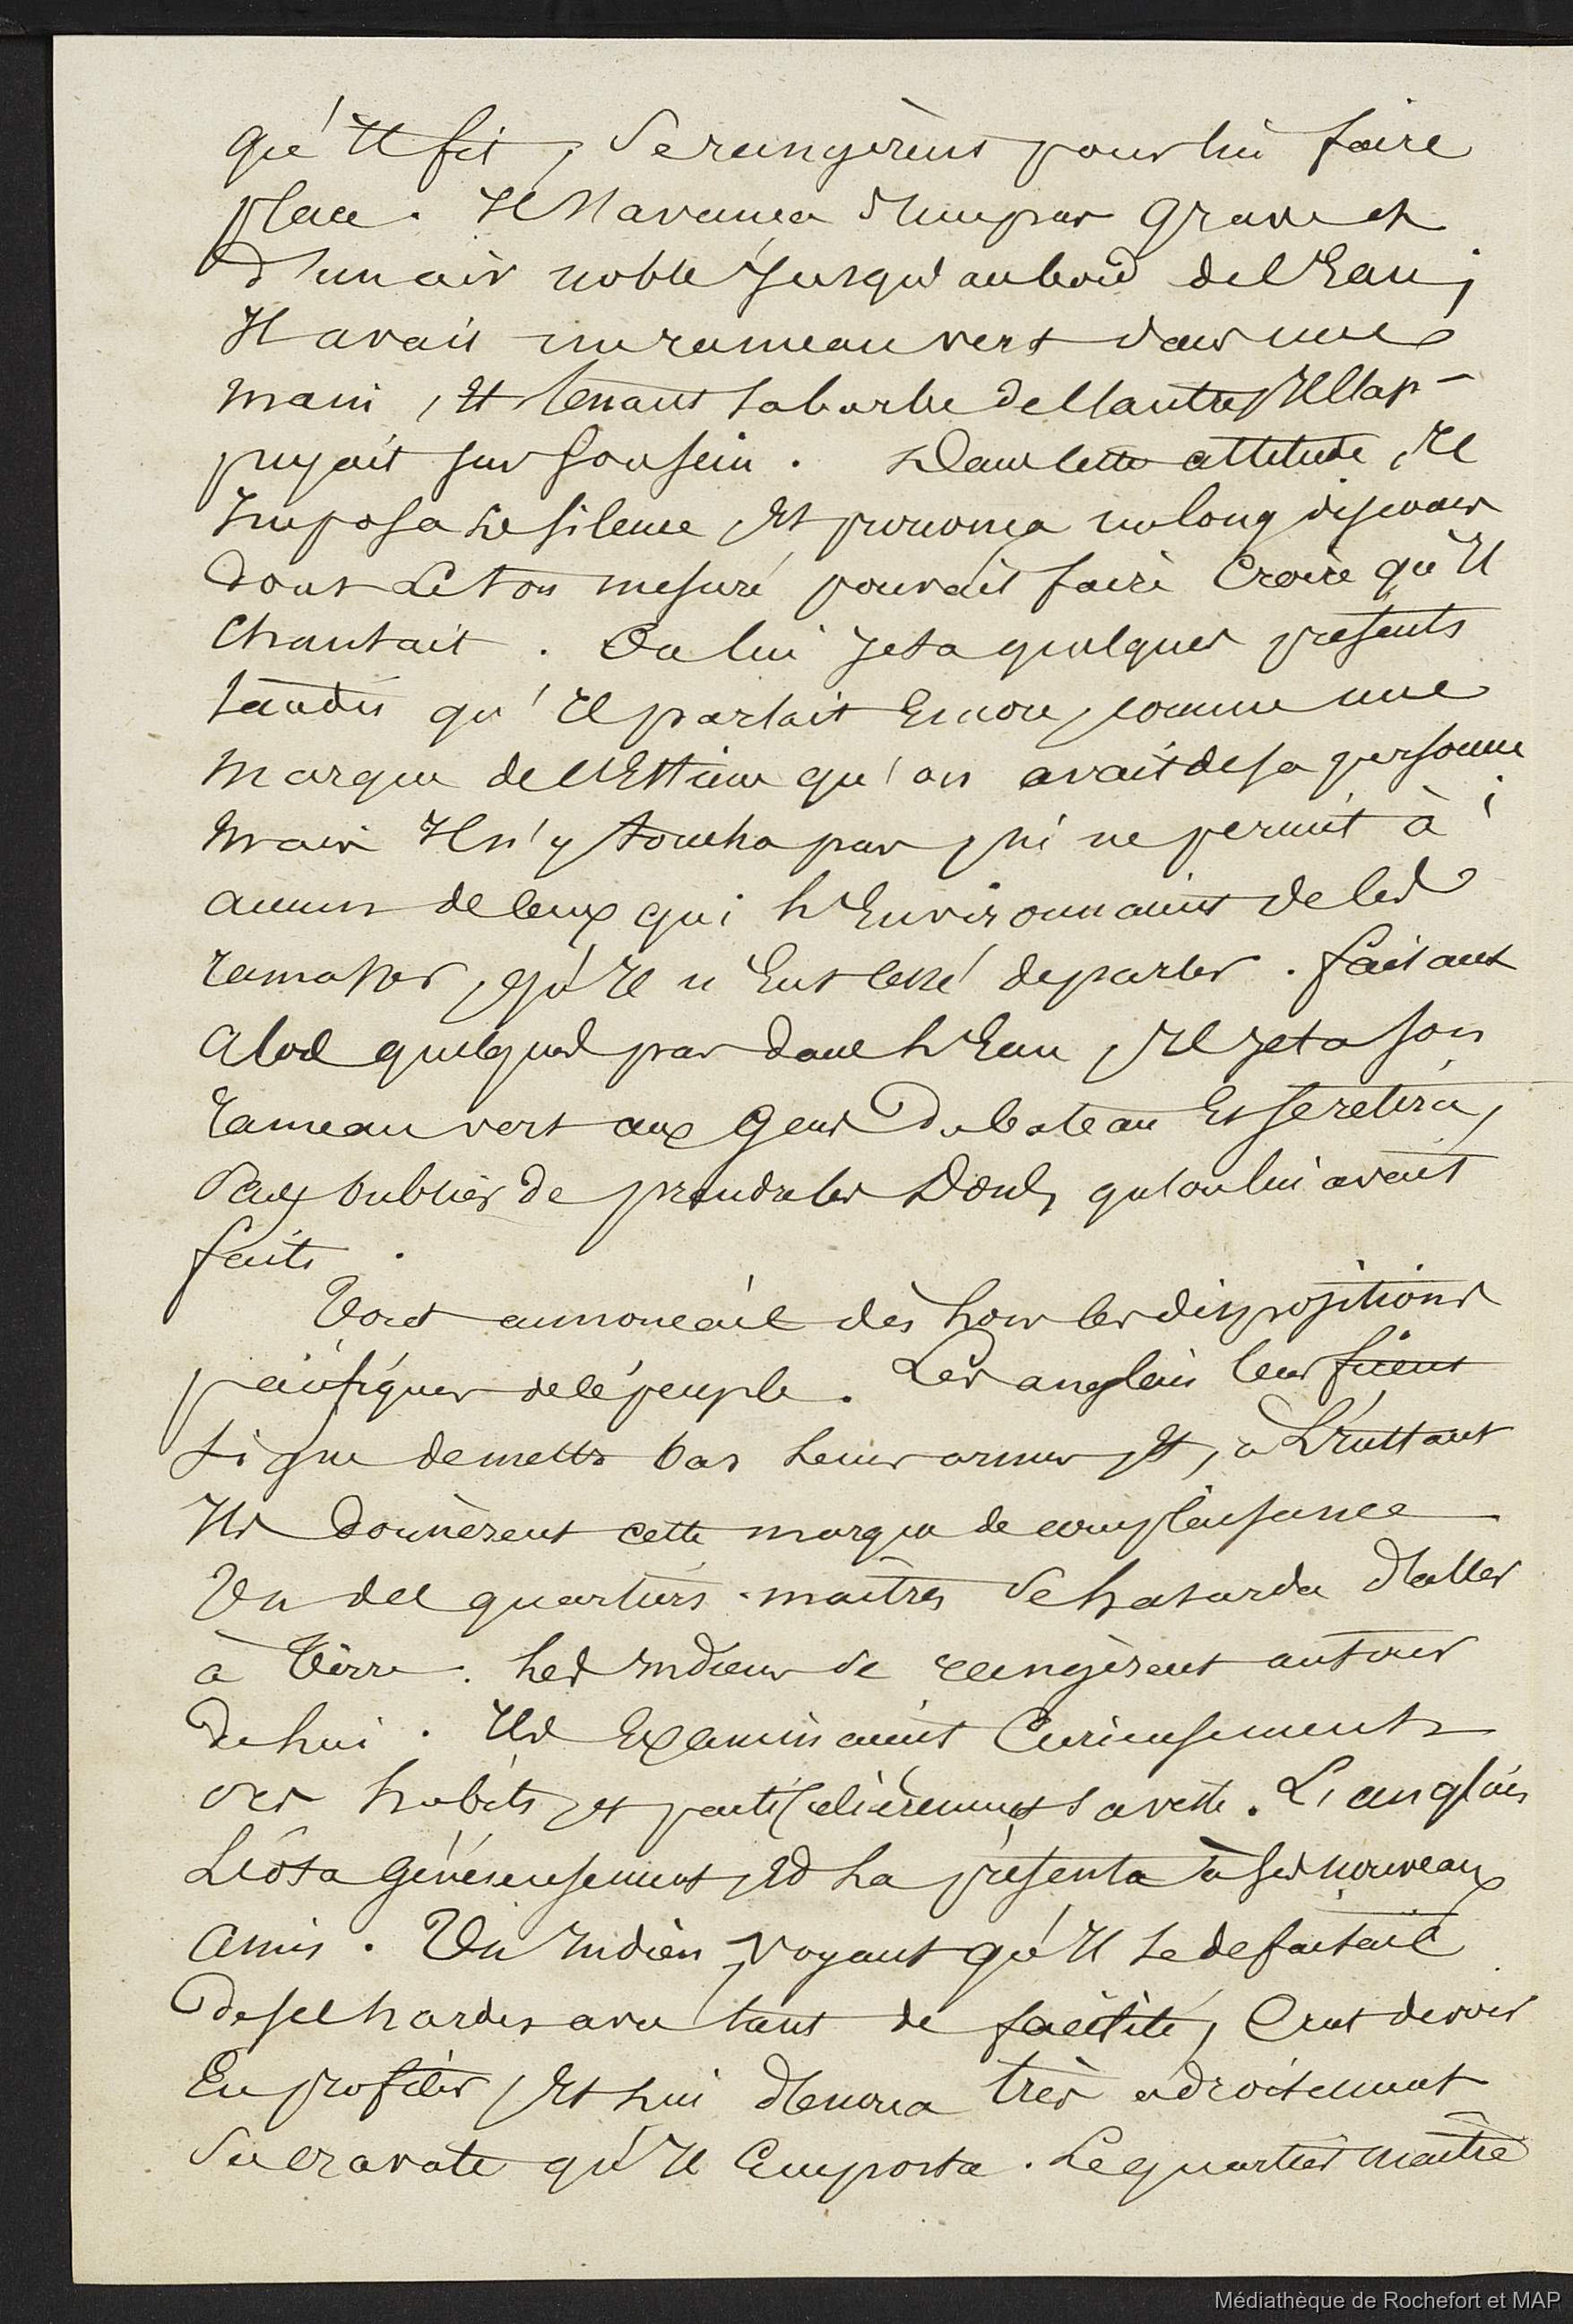 qu'il fit, se rangèrent pour lui faire
place. Il s'avança d'un pas grave et
d'un air noble jusqu'au bord de l'eau ;
Il avait un rameau vert dans une
main, et tenant sa barbe de l'autre, il l'ap-
puyait sur son sein. Dans cette attitude, il
imposa le silence, et prononça un long discours
dont le ton mesuré pouvait faire croire qu'il
chantait. On lui jeta quelques présents
tandis qu'il parlait encore, comme une
marque de l'estime qu'on avait de sa personne ;
mais il n'y toucha pas, ni ne permit à
aucun de ceux qui l'environnaient de les
ramasser, qu'il n'eut cessé de parler. Faisant
alors quelques pas dans l'eau, il jeta son
rameau vert aux gens du bateau et se retira,
sans oublier de prendre les dons qu'on lui avait
faits.
Tout annonçait dès lors les dispositions
pacifiques de ce peuple. Les anglais leur firent
signe de mettre bas leurs armes, et, à l'instant
ils donnèrent cette marque de complaisance
Un des quartiers-maîtres se hasarda d'aller
à terre. Les indiens se rangèrent autour
de lui. Ils examinaient curieusement
ses habits, et particulièrement sa veste. L'anglais
l'ôta généreusement, et la présenta à ses nouveaux
amis. Un indien, voyant qu'il se défaisait
de ses hardes avec tant de facilité, crut devoir
en profiter, et lui dénoua très adroitement
sa cravate qu'il emporta. Le quartier maître
Médiathèque de Rochefort et MAP